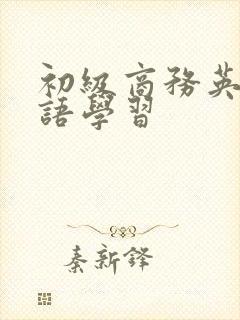 初級商務英
語學習
秦新鋒